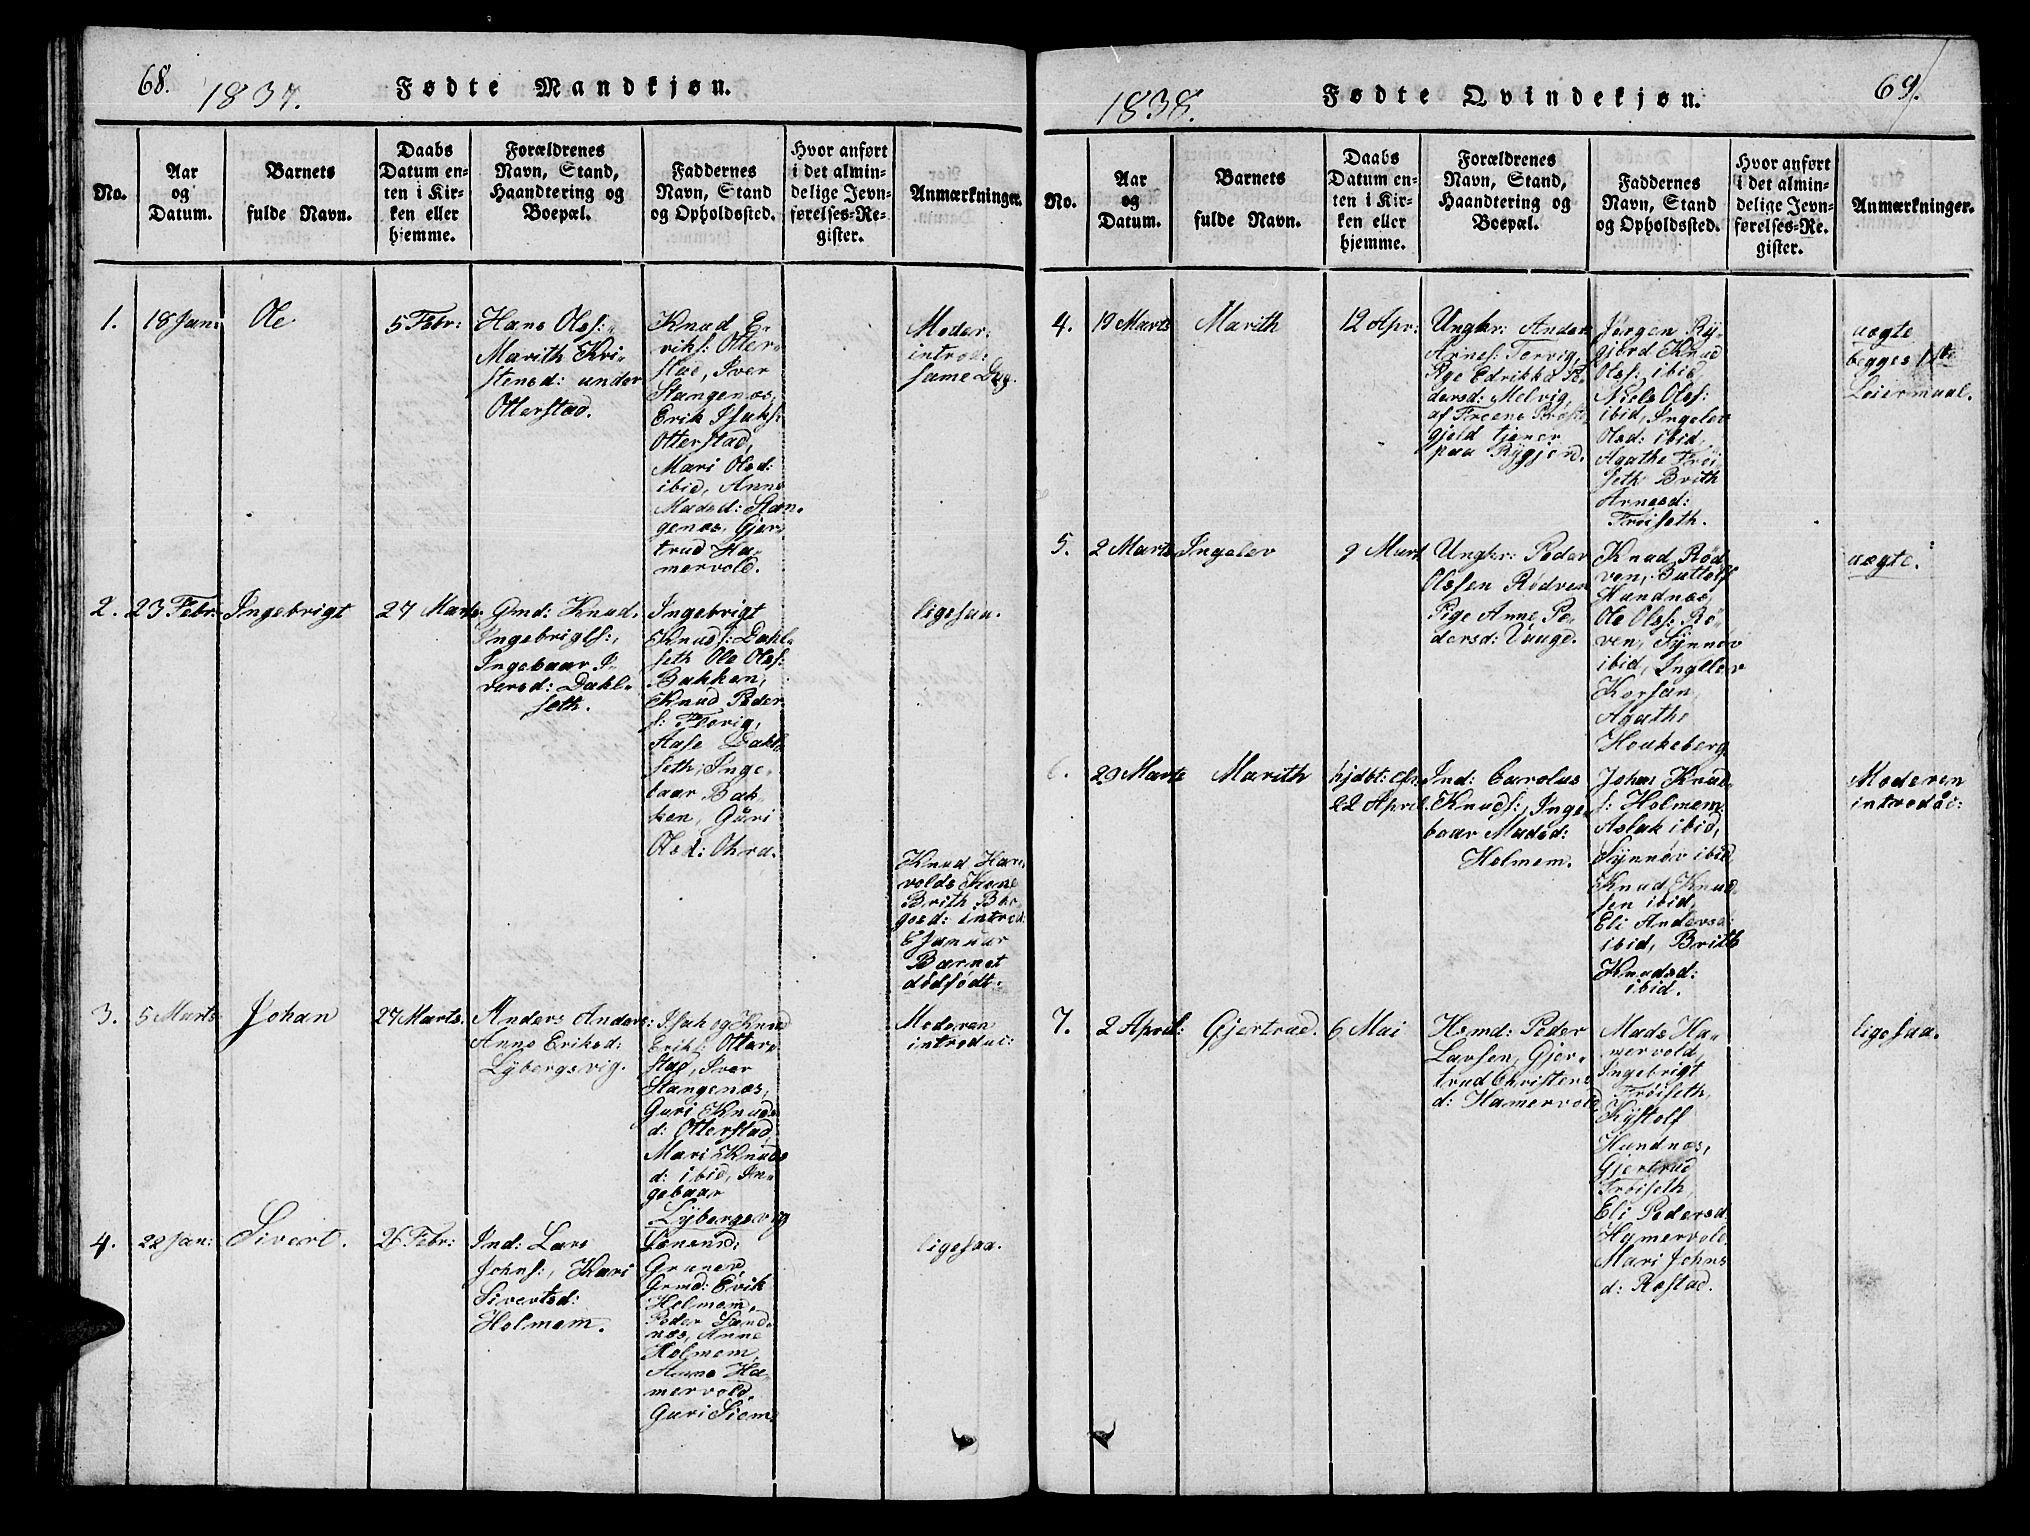 68.
1837.
Fødte Mandkjøn.
No.
Aar
og
Datum.
Barnets
fulde Navn.
Daabs
Datum en-
ten i Kir-
ken eller
hjemme.
Forældrenes
Navn, Stand,
Haandtering og
Boepæl.
Faddernes
Navn, Stand
og Opholdssted.
Hvor anført
i det almin-
delige Jevn-
førelses-Re-
gister.
Anmærkninger.
1.
18 Jan:
Ole
5 Febr:
Hans Olss:
Marith Kri-
stensd: under
Otterstad.
Knud E-
riks: Otter-
stad, Iver
Stangenæs,
Erik Isaks:
Otterstad,
Mari Olsd:
ibid, Anne
Madsd: Stan-
genæs, Gjer-
trud Ha-
mervold.
Moder:
introd:
same Dag.
2.
23 Febr:
Ingebrigt
27 Marts.
Gmd: Knud
Ingebrigts:,
Ingebaar I-
versd: Dahl-
seth.
Ingebrigt
Knuds: Dahl-
seth Ole Olss:
Bakken,
Knud Peder
s: Flovig,
Aase Dahl-
seth, Inge-
baar Bak-
ken, Guri
Olsd:
ligesaa.
Knud Har-
volds Kone
Brith
introd:
6 Januar
Barnet
dødfødt.
3.
5 Marts
Johan
27 Marts.
Anders Anders:
Anne Eriksd:
Lybergsvig.
Isak og Knud
Eriks: Otter-
stad, Iver
Stangenæs,
Guri Knuds
d: Otterstad,
Mari Knuds
d: ibid, In-
gebaar
Lybergsvig
Moderen
introduc:
4.
22 Jan:
Sivert.
26 Febr:
Ind: Lars
Johns:, Kari
Sivertsd:
Holmem.
Gmd: Erik
Holmem,
Peder Sand-
næs, Anne
Holmem,
Anne Ha-
mervold,
Guri Siem.
ligesaa.
1838.
Fødte Qvindekjøn.
69.
No.
Aar
og
Datum.
Barnets
fulde Navn.
Daabs
Datum en-
ten i Kir-
ken eller
hjemme.
Forældrenes
Navn, Stand,
Haandtering og
Boepæl.
Faddernes
Navn, Stand
og Opholdssted.
Hvor anført
i det almin-
delige Jevn-
førelses-Re-
gister.
Anmærkninger.
4.
19 Marts
Marith
12 Apr:
Ungkr: Anders
Arnes: Torvig,
Pige Edrikka Pe-
dersd: Melvig,
af Fræene Præste-
gjeld tjener
paa Rygjerd.
Jørgen Ry-
gjerd Knud
Olss: ibid
Niels Olss:
ibid, Ingelev
Olsd: ibid,
Agathe Frøi-
seth Brith
Arnesd:
Frøiseth.
uægte
begges 1ste
Leiermaal.
5.
2 Marts
Ingelev
9 Mart
Ungkr: Peder
Olssen Rødven
Pige Anne Pe-
dersd: Vaage.
Knud Rød-
ven, Buttolf
Hundnæs,
Ole Olss: Rø-
ven, Synnøv
ibid, Ingelev
Korsan
Agathe
Houkeberg
uægte.
6.
29 Marts
Marith
hjdbt:
22 April
Ind: Carolus
Knuds:, Inge-
baar Madsd:
Holmem.
Johan Knud-
s: Holmem
Aslak ibid,
Synnøv ibid
Knud Knud
sen ibid,
Eli Andersd:
ibid, Brith
Knudsd:
ibid.
Moderen
introduc:
7.
2 April:
Gjertrud.
6 Mai
Hsmd: Peder
Larsen, Gjer-
trud Christens
d: Hamervold
Mads Ha-
mervold,
Ingebrigt
Frøiseth,
Kystolf
Hundnæs,
Gjertrud
Frøiseth,
Eli Pedersd
Hamervold,
Mari Johns
d: Røstad.
ligesaa.